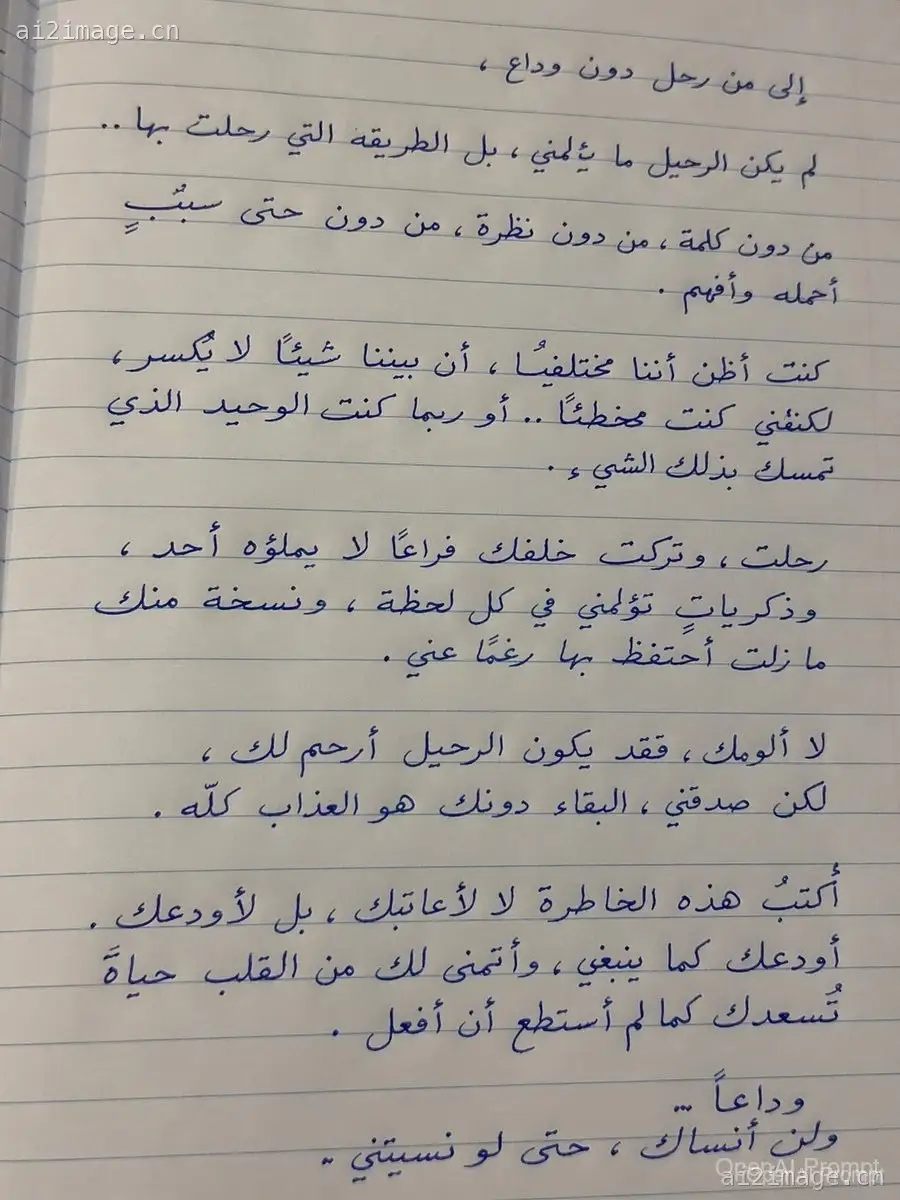 ai2image.cn
إلى من رحل دون وداع ،
لم يكن الرحيل ما يؤلمني ، بل الطريقه التي رحلت بها ..
من دون كلمة ، من دون نظرة ، من دون حتى سببٍ
أحمله وأفهم .
كنت أظن أننا ، أن بيننا شيئًا لا يُكسر ،
كنت مخطئًا .. أو ربما كنت الوحيد الذي
تمسك بذلك الشيء .
رحلت ، وتركت خلفك فراعًا لا يملؤه أحد ،
وذكرياتٍ تؤلمني في كل لحظة ، ونسخة منك
ما زلت أحتفظ بها رغمًا عني .
لا ألومك ، فقد يكون الرحيل أرحم لك ،
لكن صدقني ، البقاء دونك هو العذاب كلّه .
أُكتبُ هذه الخاطرة لا لأعاتبك ، بل لأودعك .
أودعك كما ينبغي ، وأتمنى لك من القلب حياةً
تُسعدك كما لم أستطع أن أفعل .
وداعاً ...
ولن أنساك ، حتى لو نسيتني ..
OpenAI Prompt
ai2image.cn